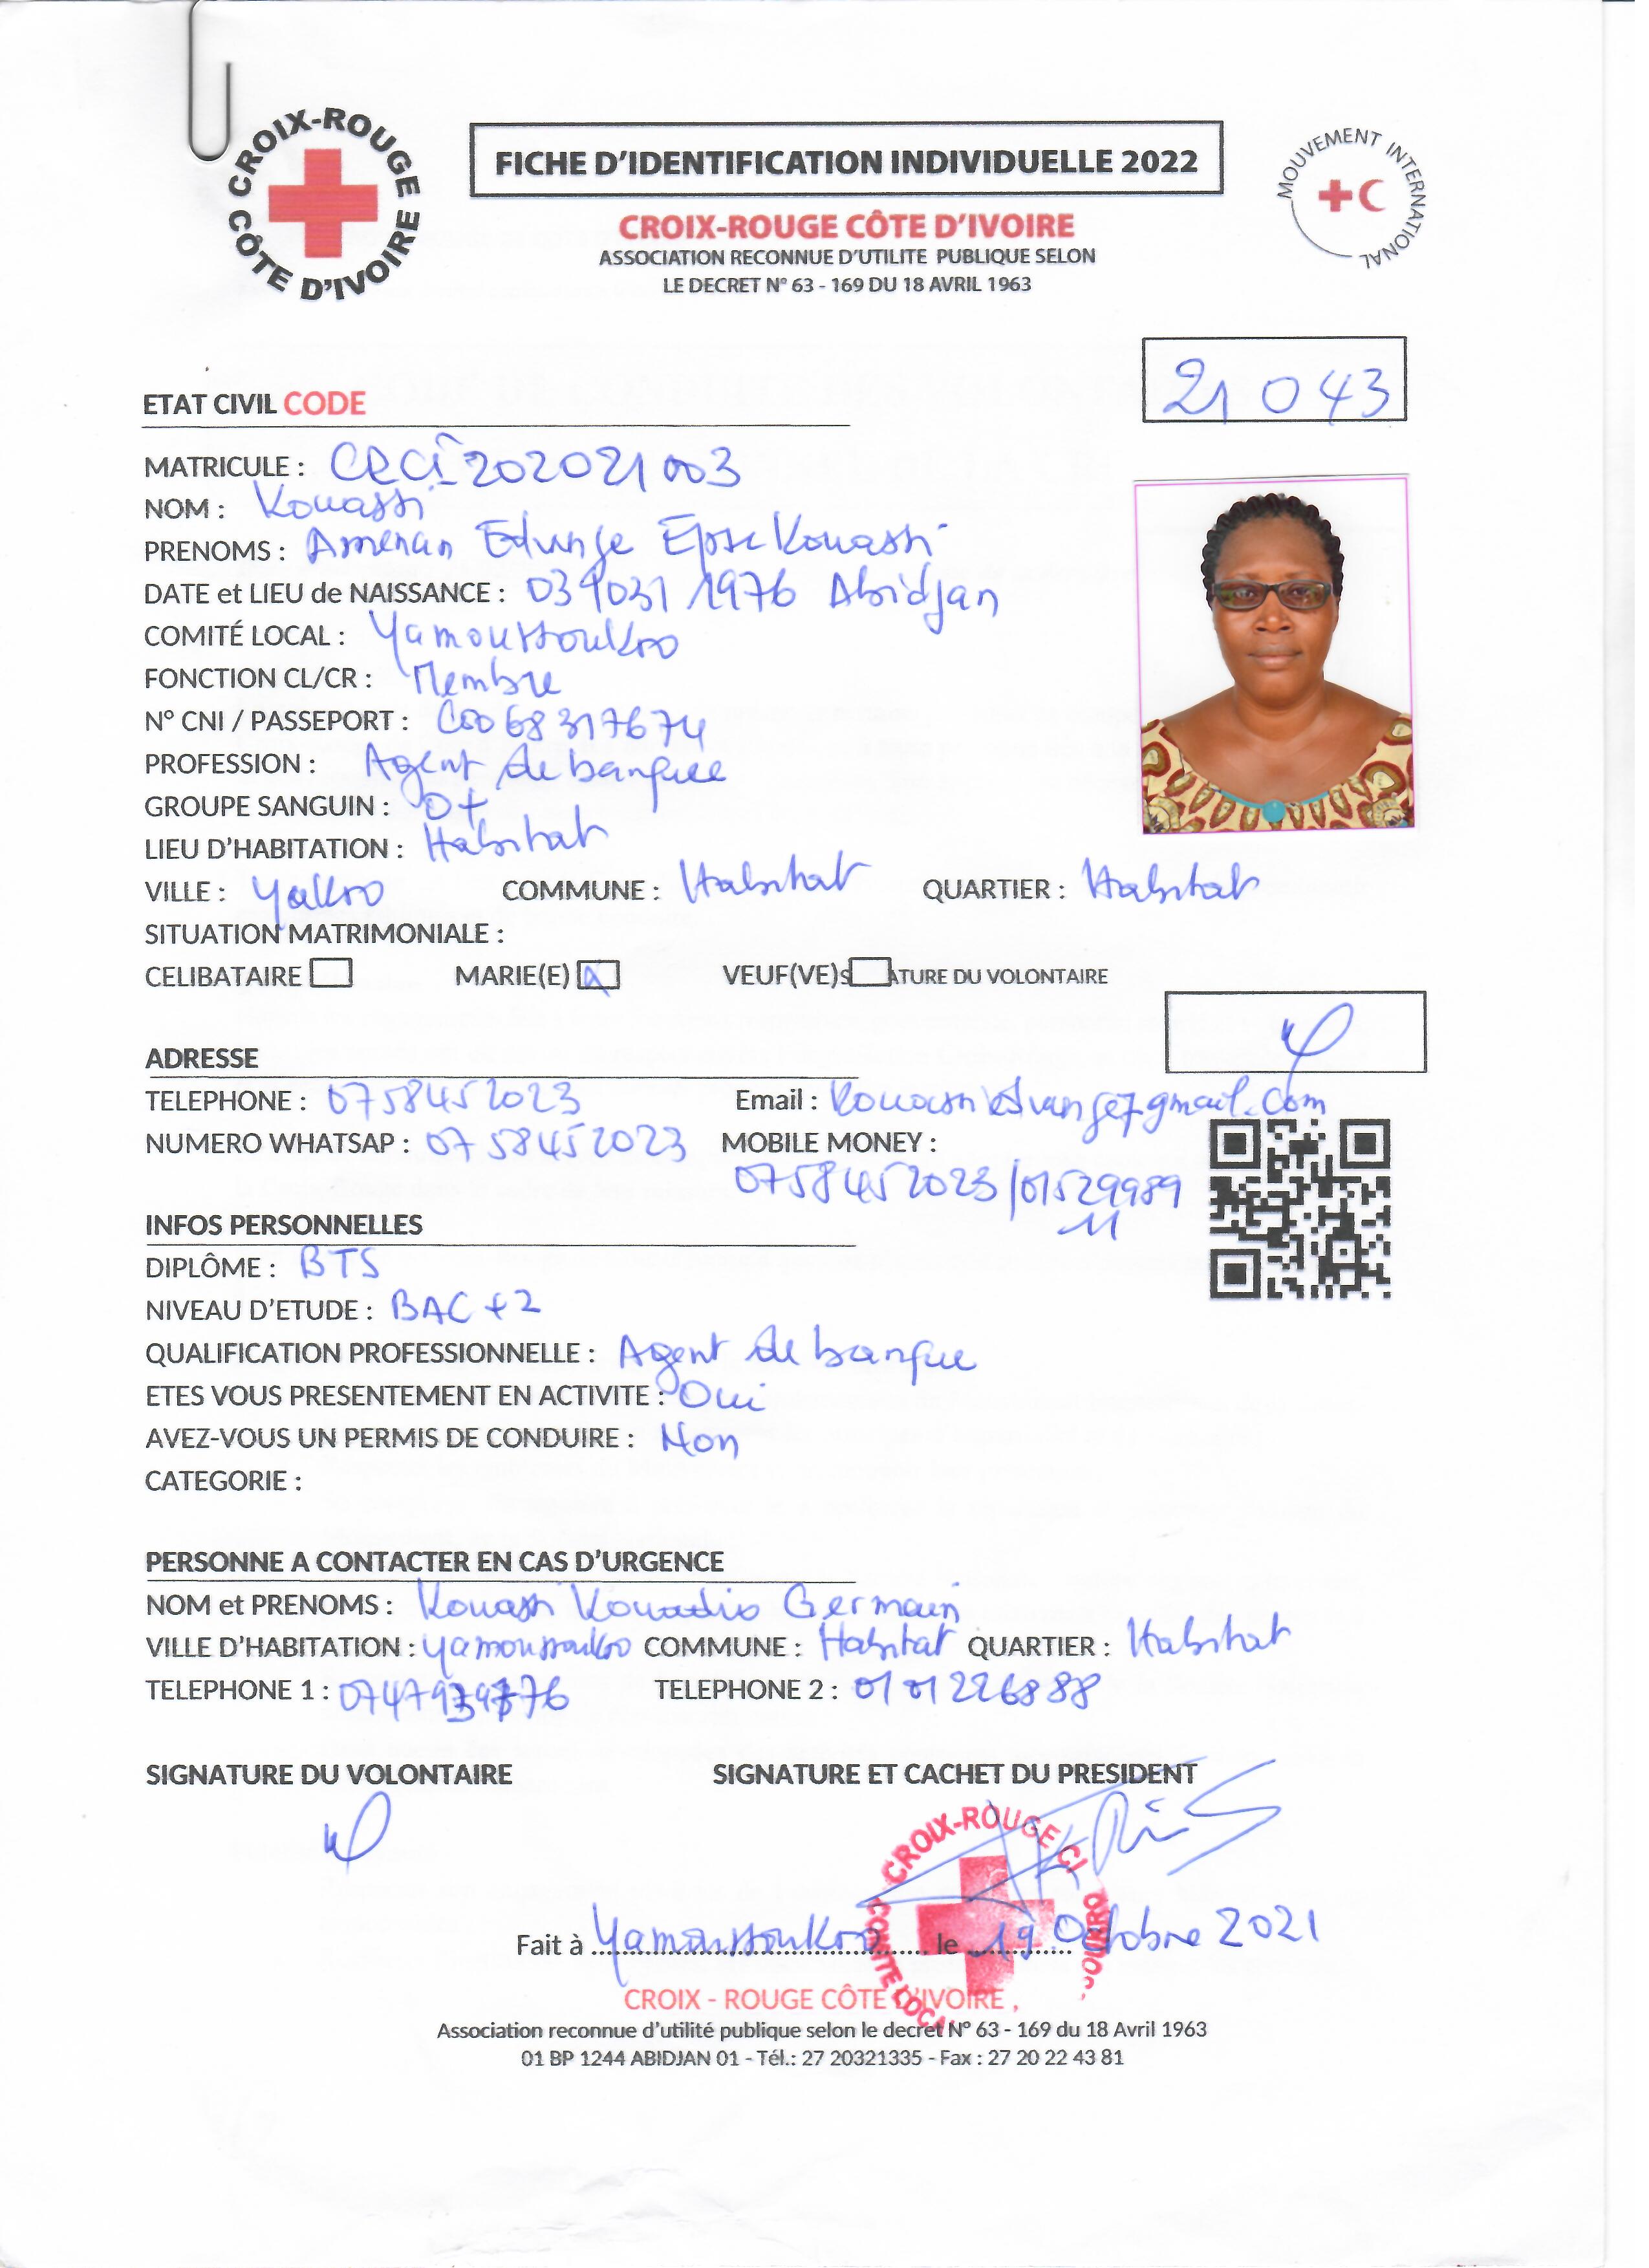 CROIX-ROUGE CÔTE D'IVOIRE
FICHE D'IDENTIFICATION INDIVIDUELLE 2022
MOUVEMENT INTERNATIONAL
CROIX-ROUGE CÔTE D'IVOIRE
ASSOCIATION RECONNUE D'UTILITE PUBLIQUE SELON
LE DECRET N° 63 - 169 DU 18 AVRIL 1963
21 043
ETAT CIVIL CODE
MATRICULE : CRCI202021003
NOM : Kouassi
PRENOMS : Amenan Edwige Epse Kouassi
DATE et LIEU de NAISSANCE : 1976 Abidjan
COMITÉ LOCAL : Yamoussoukro
FONCTION CL/CR : Membre
N° CNI / PASSEPORT : C0068317674
PROFESSION : Agent de banque
GROUPE SANGUIN : O+
LIEU D'HABITATION : Habitat
VILLE : Yakro COMMUNE : Habitat QUARTIER : Habitat
SITUATION MATRIMONIALE :
CELIBATAIRE MARIE(E) X VEUF(VE)S ATURE DU VOLONTAIRE
ADRESSE
TELEPHONE : 0758452023 Email : gmail.com
NUMERO WHATSAP : 0758452023 MOBILE MONEY :
0758452023/01529989
11
INFOS PERSONNELLES
DIPLÔME : BTS
NIVEAU D'ETUDE : BAC +2
QUALIFICATION PROFESSIONNELLE : Agent de banque
ETES VOUS PRESENTEMENT EN ACTIVITE : Oui
AVEZ-VOUS UN PERMIS DE CONDUIRE : Non
CATEGORIE :
PERSONNE A CONTACTER EN CAS D'URGENCE
NOM et PRENOMS : Kouassi Kouadio Germain
VILLE D'HABITATION : Yamoussoukro COMMUNE : Habitat QUARTIER : Habitat
TELEPHONE 1 : TELEPHONE 2 : 0101226888
SIGNATURE DU VOLONTAIRE SIGNATURE ET CACHET DU PRESIDENT
CROIX-ROUGE CI
COMITE LOCAL
Fait à Yamoussoukro le 19 Octobre 2021
CROIX - ROUGE CÔTE D'IVOIRE ,
Association reconnue d'utilité publique selon le decret N° 63 - 169 du 18 Avril 1963
01 BP 1244 ABIDJAN 01 - Tél.: 27 20321335 - Fax : 27 20 22 43 81